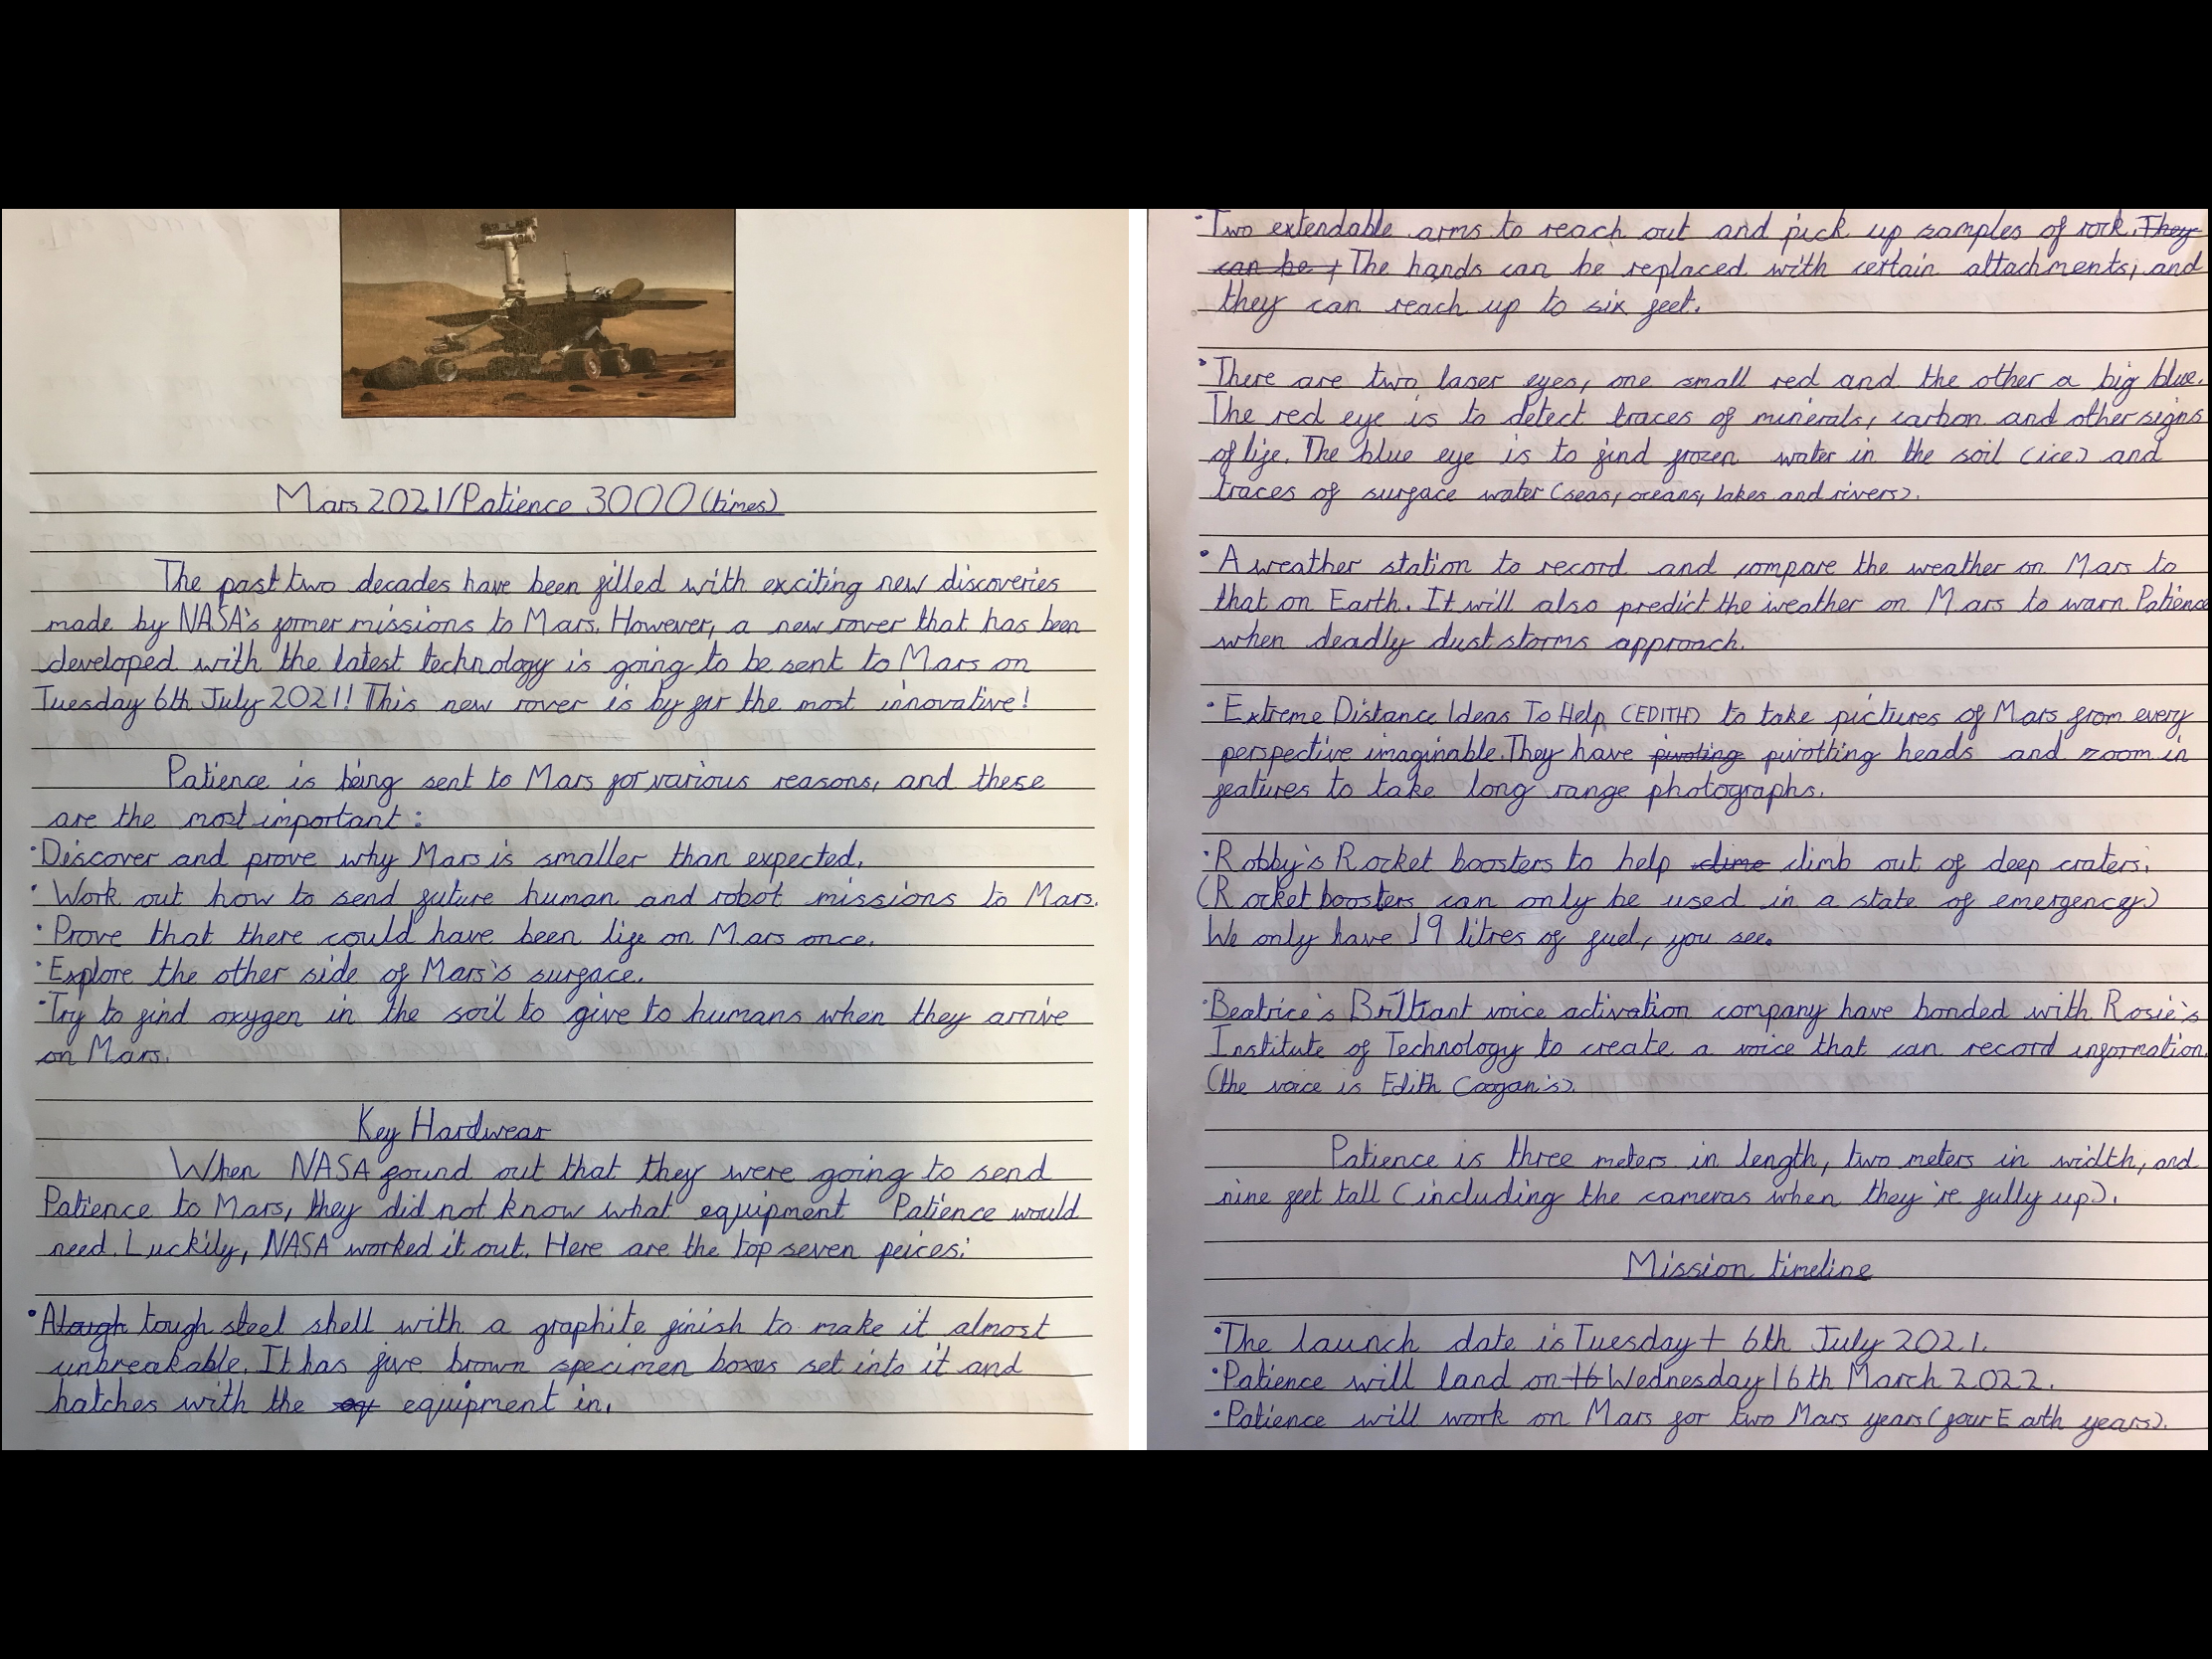 Mars 2021/Patience 3000 (times)
The past two decades have been filled with exciting new discoveries
made by NASA's former missions to Mars. However, a new rover that has been
developed with the latest technology is going to be sent to Mars on
Tuesday 6th July 2021! This new rover is by far the most innovative!
Patience is being sent to Mars for various reasons, and these
are the most important:
•Discover and prove why Mars is smaller than expected.
•Work out how to send future human and robot missions to Mars.
•Prove that there could have been life on Mars once.
•Explore the other side of Mars's surface.
•Try to find oxygen in the soil to give to humans when they arrive
on Mars.
Key Hardwear
When NASA found out that they were going to send
Patience to Mars, they did not know what equipment Patience would
need. Luckily, NASA worked it out. Here are the top seven peices:
•A tough tough steel shell with a graphite finish to make it almost
unbreakable. It has five brown specimen boxes set into it and
hatches with the eq equipment in.
•Two extendable arms to reach out and pick up samples of rock. They
can be t The hands can be replaced with certain attachments, and
they can reach up to six feet.
•There are two laser eyes, one small red and the other a big blue.
The red eye is to detect traces of minerals, carbon and other signs
of life. The blue eye is to find frozen water in the soil (ice) and
traces of surface water (seas, oceans, lakes and rivers).
•A weather station to record and compare the weather on Mars to
that on Earth. It will also predict the weather on Mars to warn Patience
when deadly dust storms approach.
•Extreme Distance Ideas To Help (EDITH) to take pictures of Mars from every
perspective imaginable. They have pivoting pivotting heads and zoom in
features to take long range photographs.
•Robby's Rocket boosters to help clime climb out of deep craters.
(Rocket boosters can only be used in a state of emergency)
We only have 19 litres of fuel, you see.
•Beatrice's Brilliant voice activation company have bonded with Rosie's
Institute of Technology to create a voice that can record information.
(the voice is Edith Coogan's).
Patience is three meters in length, two meters in width, and
nine feet tall (including the cameras when they're fully up).
Mission timeline
•The launch date is Tuesday t 6th July 2021.
•Patience will land on 16 Wednesday 16th March 2022.
•Patience will work on Mars for two Mars years (four Earth years).